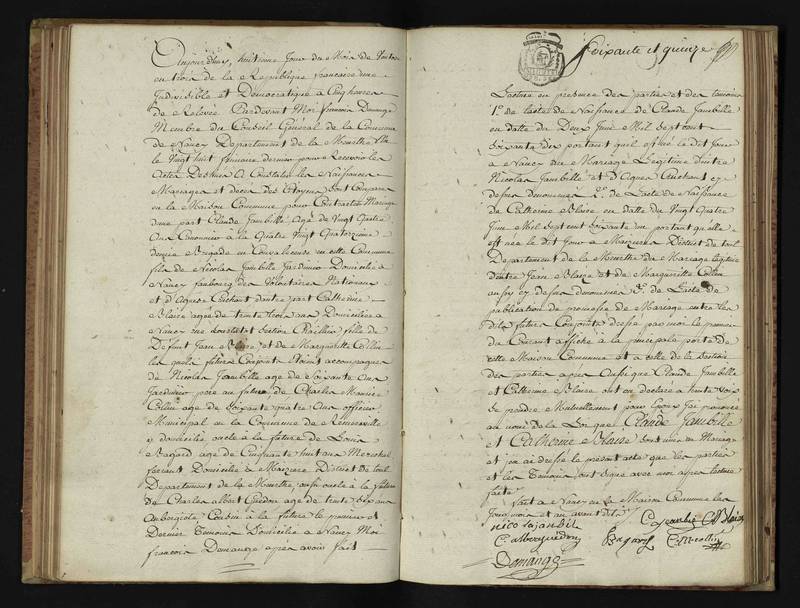 Aujourdhuy, huitieme Jour du Mois de Ventose
en trois de la Republique francaise une
Indivisible et Democratique a Cinq heures
de Relevée Pardevant Moi francois Demange
Membre du Conseil Général de la Commune
de Nancy Departement de la Meurthe
le Vingt huit dernier pour Recevoir les
Actes Destinés a Constater les Naissances
Mariages et decès des Citoyens sont Comparus
en la Maison Commune pour Contracter Mariage
dune part Claude Jambille agé de Vingt Quatre
Ans Canonnier à la Quatre Vingt Quatorzieme
demie Brigade en Convalescence en cette Commune
fils de Nicolas Jambille Jardinier Domicilié a
Nancy faubourg des Volontaires Nationaux
et d'Agnes Crichant dautre part Catherine
Blaise agée de trente trois ans Domiciliée a
Nancy section fille de
Defunt Jean Blaise et de Marguerite Collin
les quels futurs Conjoints Etoient accompagnés
de Nicolas Jambille agé de Soixante ans
Jardinier pere au futur de Charles Maurice
Colin agé de Soixante quatre ans officier
Municipal en la Commune de
y domicilié oncle à la future de Louis
Bagard agé de Cinquante huit ans Marechal
ferrant Domicilié a Maiziere District de toul
Departement de la Meurthe aussi oncle à la future
de Charles albert Guedon agé de trente six ans
Aubergiste Cousin a la future le premier et
Dernier Temoin Domicilié a Nancy Moi
francois Demange apres avoir fait
Soixante et quinze
Lecture en presence des parties et des temoins
1º de lacte de Naissance de Claude Jambille
en datte du Deux Juin Mil Sept cent
Soixante dix portant quil est né le dit Jour
a Nancy du Mariage Legitime d'entre
Nicolas Jambille et d'Agnes Crichant cy
dessus denommés 2º de Lacte de Naissance
de Catherine Blaise en datte du Vingt Quatre
Juin Mil Sept cent Soixante un portant qu'elle
est née le dit Jour a Maizieres District de toul
Departement de la Meurthe du Mariage legitime
d'entre Jean Blaise et de Marguerite Collin
aussy cy dessus denommés 3º de Lacte de
publication de promesse de Mariage entre les
dits futurs Conjoints dressé par moi le premier
du Courant affiché a la principale porte de
cette Maison Commune et a celle de la Section
des parties apres Aussi que Claude Jambille
et Catherine Blaise ont eu declaré a haute voix
se prendre Mutuellement pour Epoux J'ai prononcé
au nom de la Loi que Claude Jambille
et Catherine Blaise sont unis en Mariage
et j'en ai dressé le présent acte que les parties
et les Temoins ont signé avec moi apres lecture
faite
fait a Nancy en la Maison Commune les
Jour mois et an avant dits
nicolas janbil C Jeanbil C Blaise
C albert guedon Bagard C M collin
Demange